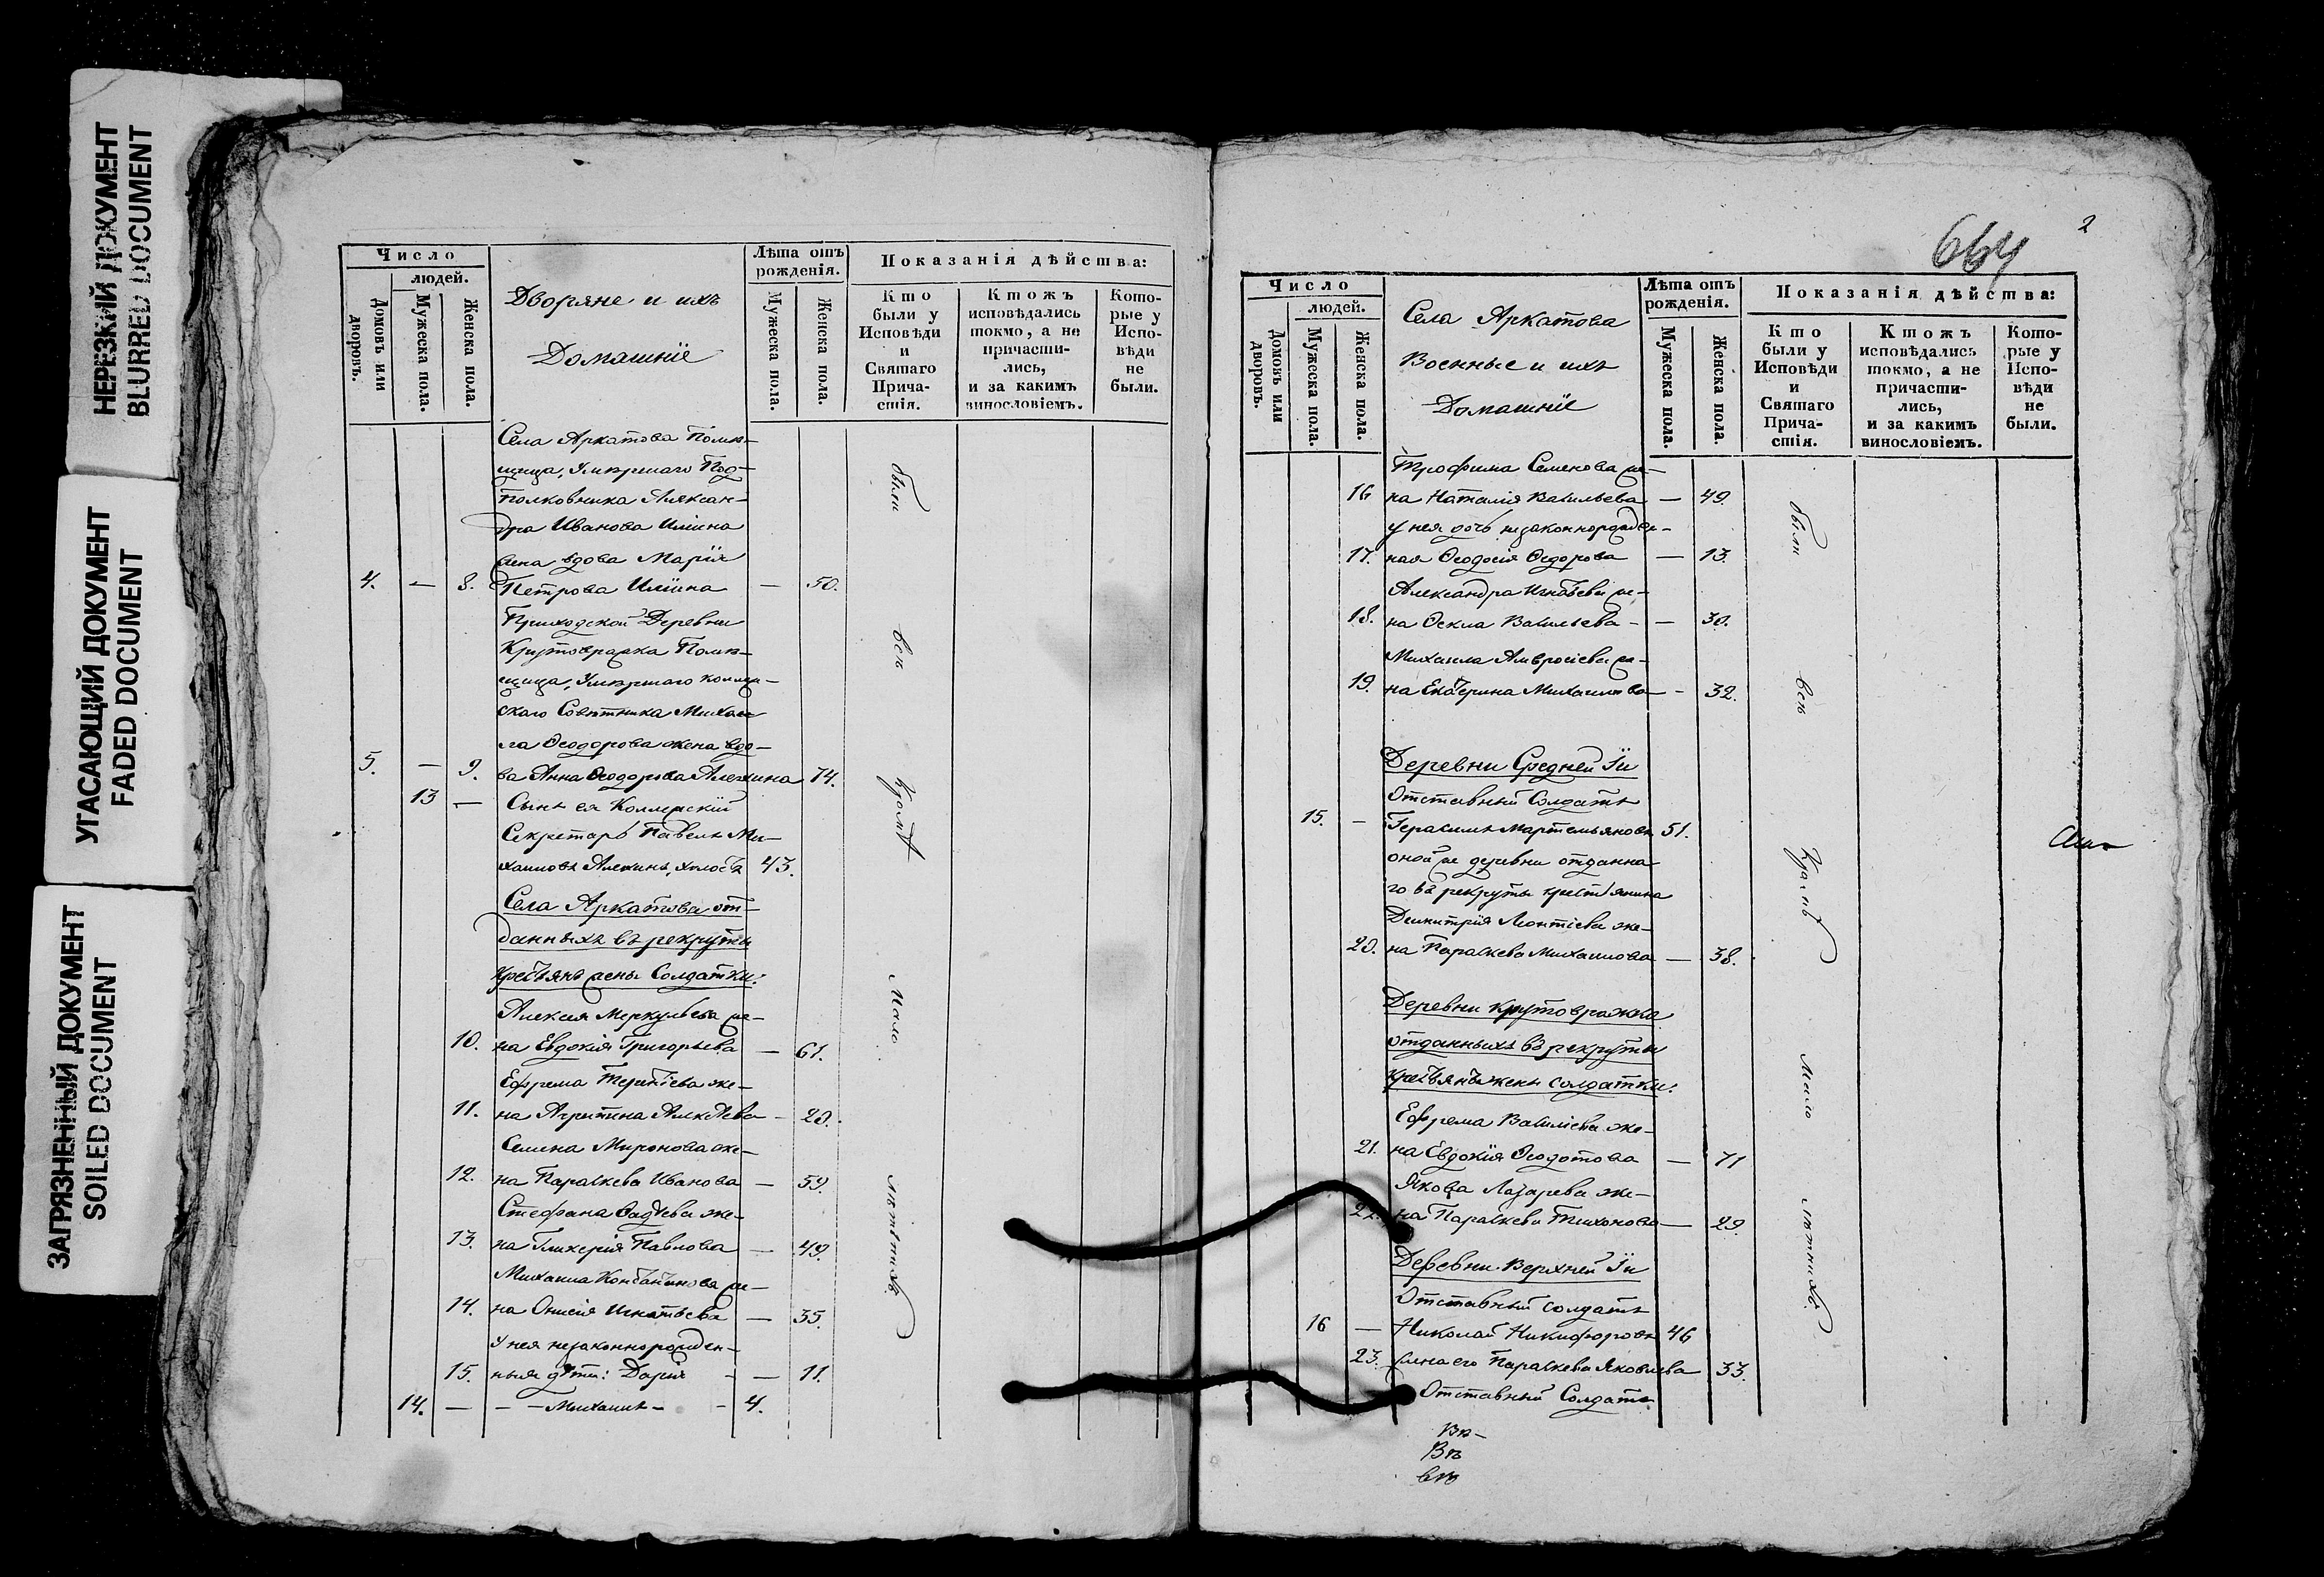 НЕРЕЗКИЙ ДОКУМЕНТ
BLURRED DOCUMENT
УГАСАЮЩИЙ ДОКУМЕНТ
FADED DOCUMENT
ЗАГРЯЗНЕННЫЙ ДОКУМЕНТ
SOILED DOCUMENT
Число
людей.
Домовъ или дворовъ.
Мужеска пола.
Женска пола.
Дворяне и ихъ
Домашніе
Лѣта отъ рожденія.
Мужеска пола.
Женска пола.
Показанія дѣйства:
Кто были у Исповѣди и Святаго Причастія.
Ктожъ исповѣдались токмо, а не причастились, и за какимъ винословіемъ.
Которые у Исповѣди не были.
Села Аркатова Помѣ-
щица, Умершаго Под-
полковника Алексан-
дра Иванова Ильина
жена вдова Марія
4. — 8. Петрова Ильина — 50.
Приходской Деревни
Крутовражка Помѣ-
щица, Умершаго
скаго Совѣтника Михаи
ла Ѳеодорова жена вдо-
5. — 9. ва Анна Ѳеодорова Алехина 74.
13 — Сынъ ея Коллежскій
Секретарь Павелъ Ми-
хаиловъ Алехинъ, холостъ 43.
Села Аркатова от-
данныхъ въ рекруты
крестьянъ жены Солдатки:
Алексея Меркульева же-
10. на Евдокія Григорьева — 61.
Ефрема Терентіева же-
11. на Агрипина — 20.
Семена Миронова же-
12. на Параскева Иванова — 59.
Стефана же-
13. на Гликерія Павлова — 49.
Михаила Константинова же-
14. на Онисія Игнатьева — 35.
У нея незаконнорожден-
15. ныя дѣти: Дарія — — 11.
14. — — Михаилъ — 4.
были
всѣ
кромѣ
мало
лѣтнихъ
664
2
Число
людей.
Домовъ или дворовъ.
Мужеска пола.
Женска пола.
Села Аркатова
Военные и ихъ
Домашніе
Лѣта отъ рожденія.
Мужеска пола.
Женска пола.
Показанія дѣйства:
Кто были у Исповѣди и Святаго Причастія.
Ктожъ исповѣдались токмо, а не причастились, и за какимъ винословіемъ.
Которые у Исповѣди не были.
Трофима Семенова же-
16 на Наталія Васильева — 49.
у нея дочь незаконнорожден-
17. ная Ѳеодосія Ѳедорова — 13.
Александра Игнатьева же-
18. на Ѳекла Васильева — — 30.
Михаила Амвросіева же-
19. на Екатерина Михаилова — 32.
Деревни Средней Іи
Отставный Солдатъ
15. — Герасимъ Мартемьяновъ 51.
оной же деревни отданна
го въ рекруты крестьянина
Димитрія Леонтіева же-
20. на Параскева Михаилова — 38.
Деревни Крутовражка
отданныхъ въ рекруты
крестьянъ жены солдатки:
Ефрема Василіева же-
21. на Евдокія Ѳеодотова — 71
Якова Лазарева же-
22. на Параскева Тихонова — 29.
Деревни Верхней Іи
Отставный солдатъ
16 — Николай Никифоровъ 46
23. Жена его Параскева Яковлева 33.
Отставный Солдатъ
были
всѣ
кромѣ
мало
лѣтнихъ